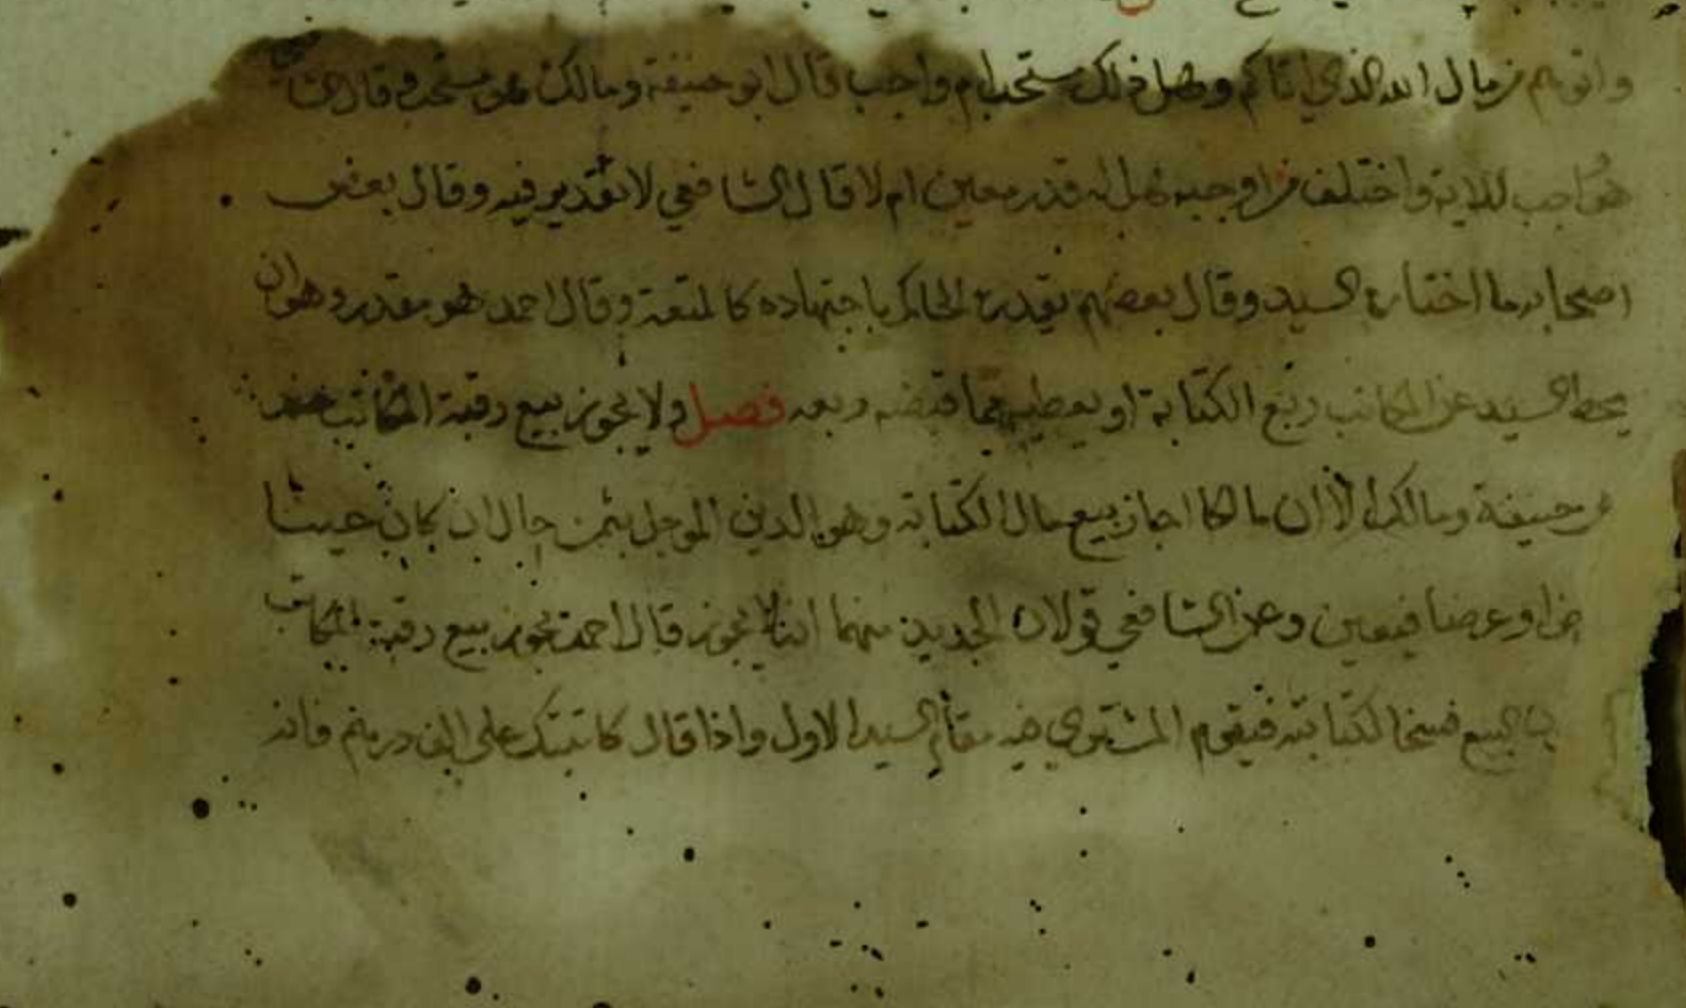 واتوهم من مال الله الذي اتاكم وهل ذلك مستحب ام واجب قال ابو حنيفة ومالك هو مستحب وقال الشا
هو واجب للاية واختلف من اوجبه هل له قدر معين ام لا قال الشافعي لا تقدير فيه وقال بعض
اصحابه ما اختاره السيد وقال بعضهم يقدره الحاكم باجتهاده كالمتعة وقال احمد هو مقدر وهو ان
يحط السيد عن المكاتب ربع الكتابة او يعطيه مما قبضه ربعه فصل ولا يجوز بيع رقبة المكاتب عند
حنيفة ومالك الا ان مالكا اجاز بيع مال الكتابة وهو الدين الموجل بثمن حال ان كان عينا
او عرضا فبعين وعن الشافعي قولان الجديد منهما انه لا يجوز قال احمد يجوز بيع رقبة المكاتب
البيع فسخا لكتابته فيقوم المشتري فيه مقام السيد الاول واذا قال كاتبتك على الف درهم فانه